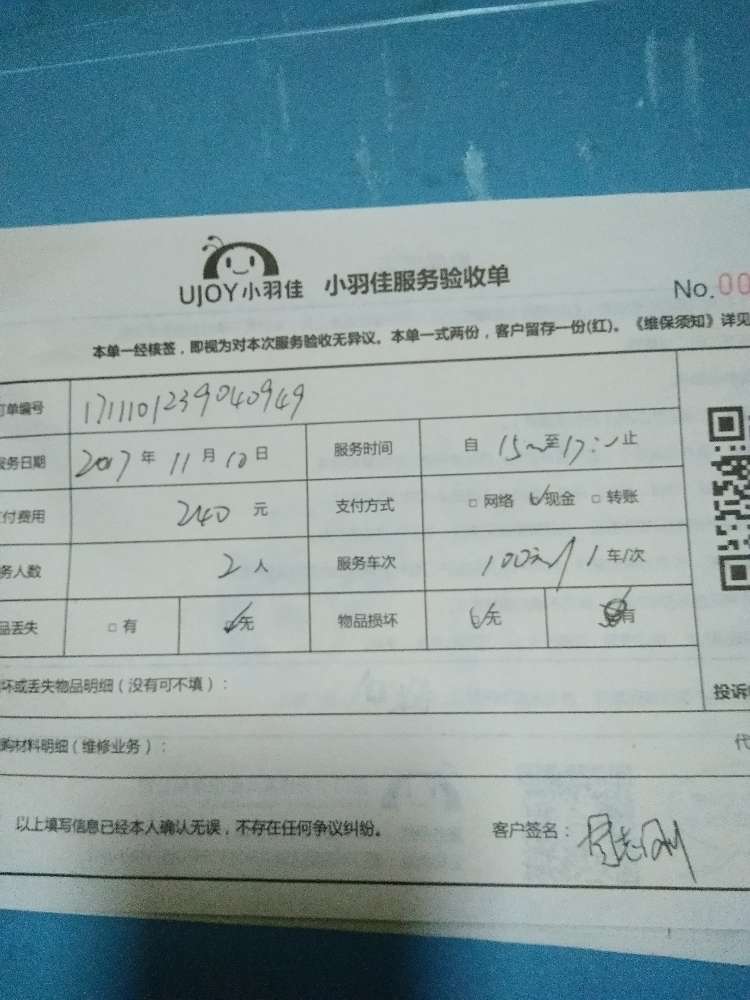 UJOY小羽佳 小羽佳服务验收单
No.00
本单一经核签，即视为对本次服务验收无异议。本单一式两份，客户留存一份(红)。《维保须知》详见
订单编号 1711101239040949
服务日期 2017 年 11 月 10 日 服务时间 自 15 至 17: 止
支付费用 240 元 支付方式 □ 网络 ☑现金 □ 转账
服务人数 2 人 服务车次 100元/ 1 车/次
品丢失 □ 有 ☑无 物品损坏 ☑无 有
坏或丢失物品明细（没有可不填）：
投诉
购材料明细（维修业务）：
代
以上填写信息已经本人确认无误，不存在任何争议纠纷。 客户签名：周志刚